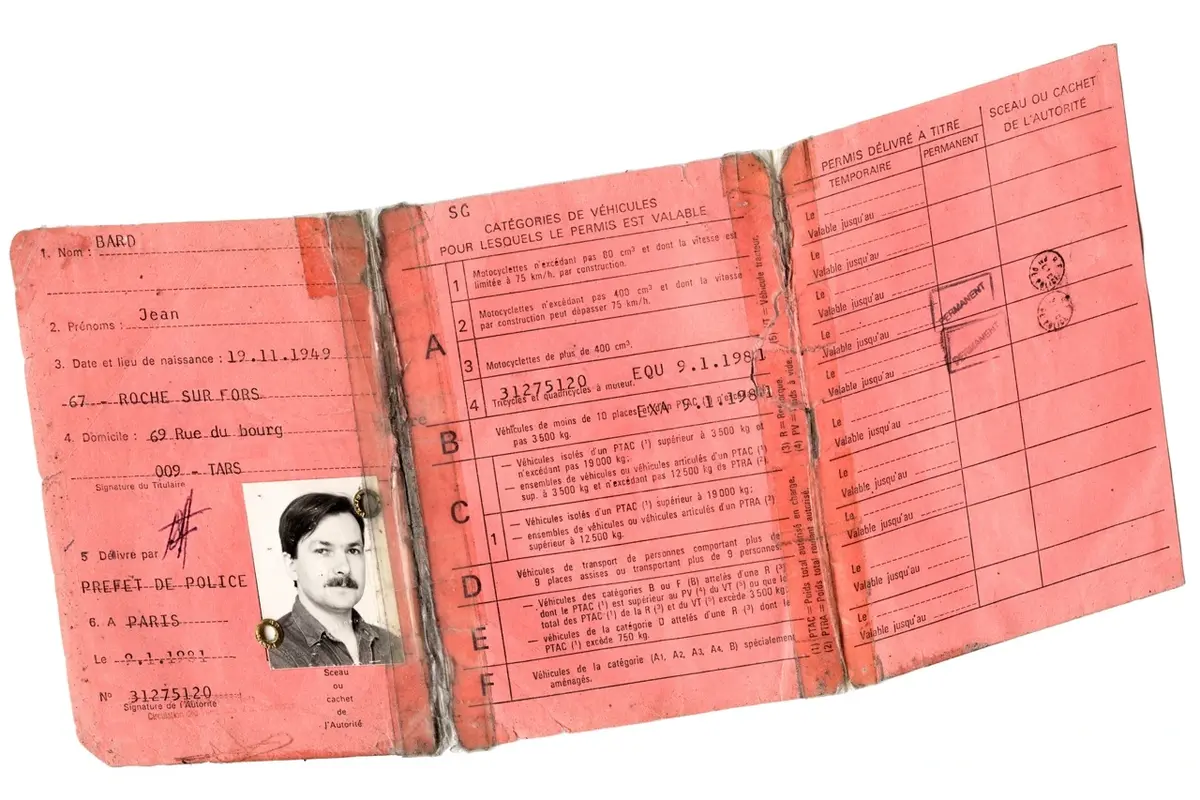 1. Nom : BARD
2. Prénoms : Jean
3. Date et lieu de naissance : 19.11.1949
67 - ROCHE SUR FORS
4. Domicile : 69 Rue du bourg
009 - TARS
Signature du Titulaire
5 Délivré par
PREFET DE POLICE
6. A PARIS
Le 9.1.1981
N° 31275120
Signature de l'Autorité
Sceau
ou
cachet
de
l'Autorité
SG
CATÉGORIES DE VÉHICULES
POUR LESQUELS LE PERMIS EST VALABLE
A
1 Motocyclettes n'excédant pas 80 cm³ et dont la vitesse est
limitée à 75 km/h, par construction.
2 Motocyclettes n'excédant pas 400 cm³ et dont la vitesse
par construction peut dépasser 75 km/h.
3 Motocyclettes de plus de 400 cm³.
31275120 EQU 9.1.1981
4 Tricycles et quadricycles à moteur.
EXA 9.1.1981
B
Véhicules de moins de 10 places et d'un PTAC (¹) n'excédant
pas 3 500 kg.
C
— Véhicules isolés d'un PTAC (¹) supérieur à 3 500 kg et
n'excédant pas 19 000 kg ;
— ensembles de véhicules ou véhicules articulés d'un PTAC (¹)
sup. à 3 500 kg et n'excédant pas 12 500 kg de PTRA (²).
1 — Véhicules isolés d'un PTAC (¹) supérieur à 19 000 kg ;
— ensembles de véhicules ou véhicules articulés d'un PTRA (²)
supérieur à 12 500 kg.
D
Véhicules de transport de personnes comportant plus de
9 places assises ou transportant plus de 9 personnes.
E
— Véhicules des catégories B ou F (B) attelés d'une R (³)
dont le PTAC (¹) est supérieur au PV (⁴) du VT (⁵) ou que le
total des PTAC (¹) de la R (³) et du VT (⁵) excède 3 500 kg ;
— véhicules de la catégorie D attelés d'une R (³) dont le
PTAC (¹) excède 750 kg.
F
Véhicules de la catégorie (A1, A2, A3, A4, B) spécialement
aménagés.
(1) PTAC = Poids total autorisé en charge.
(2) PTRA = Poids total roulant autorisé.
(3) R = Remorque.
(4) PV = Poids à vide.
(5) VT = Véhicule tracteur.
PERMIS DÉLIVRÉ A TITRE
TEMPORAIRE
PERMANENT
SCEAU OU CACHET
DE L'AUTORITÉ
Le
Valable jusqu'au
Le
Valable jusqu'au
Le
Valable jusqu'au
PERMANENT
Le
Valable jusqu'au
PERMANENT
Le
Valable jusqu'au
Le
Valable jusqu'au
Le
Valable jusqu'au
Le
Valable jusqu'au
Le
Valable jusqu'au
Le
Valable jusqu'au